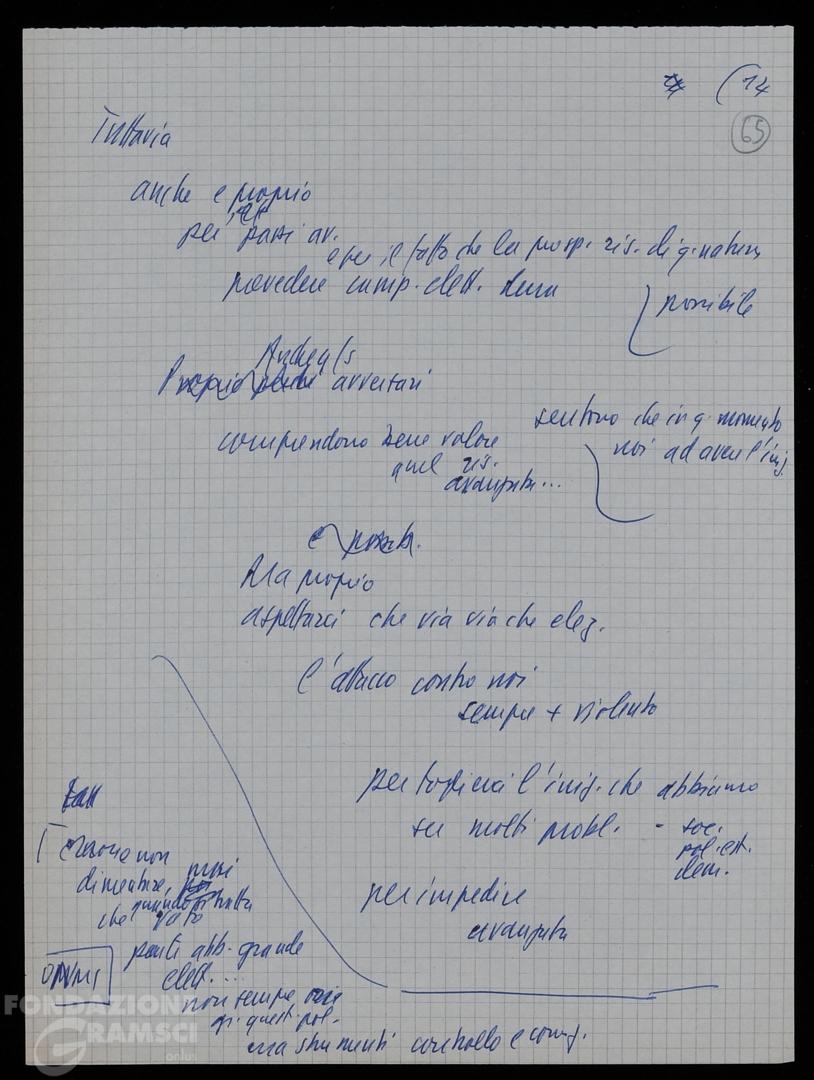 (14
65
Tuttavia
anche e proprio
per passi av.
e per il fatto che la prosp. ris. di q. natura
prevedere camp. elett. dura
possibile
Anche gli
avversari
comprendono bene valore
quel ris.
avanzata...
sentono che in q. momento
noi ad aver l'iniz.
e
Ma proprio
aspettarci che via via che elez.
l'attacco contro noi
sempre + violento
per toglierci l'iniz. che abbiamo
su molti probl. - soc.
pol. est.
dem.
per impedire
avanzata
non
dimenticare, mai
che quando si tratta
voto
partiti abb. grande
elett. ...
non sempre
questi pol.
ma strumenti controllo e
FONDAZIONE
GRAMSCI
onlus